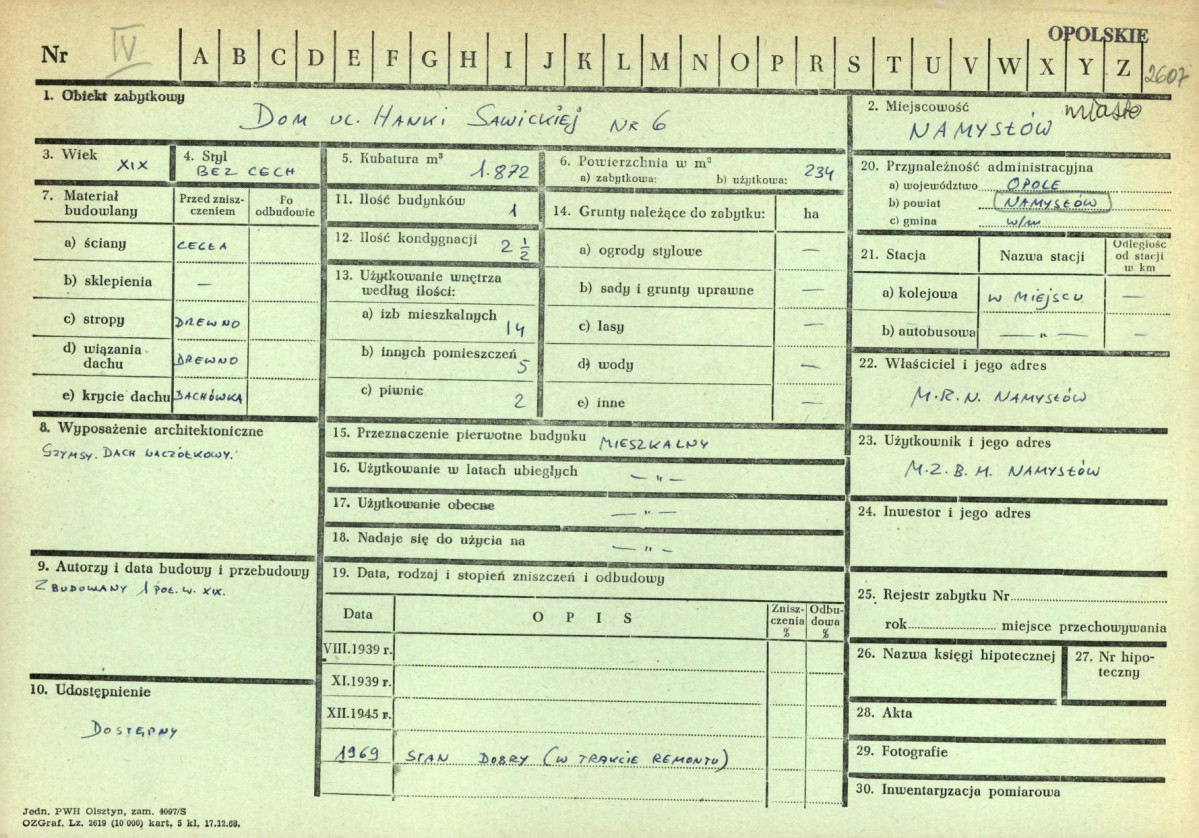 OPOLSKIE
Nr IV A B C D E F G H I J K L M N O P R S T U V W X Y Z 2607
1. Obiekt zabytkowy
DOM UL. HANKI SAWICKIEJ NR 6
2. Miejscowość miasto
NAMYSŁÓW
3. Wiek
XIX
4. Styl
BEZ CECH
5. Kubatura m³
1.872
6. Powierzchnia w m²
a) zabytkowa: b) użytkowa: 234
7. Materiał budowlany
Przed zniszczeniem
Po odbudowie
a) ściany CEGŁA
b) sklepienia —
c) stropy DREWNO
d) wiązania dachu DREWNO
e) krycie dachu DACHÓWKA
8. Wyposażenie architektoniczne
GZYMSY. DACH NACZÓŁKOWY.
9. Autorzy i data budowy i przebudowy
ZBUDOWANY 1 POŁ. W. XIX.
10. Udostępnienie
DOSTĘPNY
11. Ilość budynków
1
12. Ilość kondygnacji
2 1/2
13. Użytkowanie wnętrza
według ilości:
a) izb mieszkalnych
14
b) innych pomieszczeń
5
c) piwnic
2
14. Grunty należące do zabytku: ha
a) ogrody stylowe —
b) sady i grunty uprawne —
c) lasy —
d) wody —
e) inne —
15. Przeznaczenie pierwotne budynku MIESZKALNY
16. Użytkowanie w latach ubiegłych — " —
17. Użytkowanie obecne — " —
18. Nadaje się do użycia na — " —
19. Data, rodzaj i stopień zniszczeń i odbudowy
Data OPIS Zniszczenia % Odbudowa %
VIII.1939 r.
XI.1939 r.
XII.1945 r.
1969 STAN DOBRY (W TRAKCIE REMONTU)
20. Przynależność administracyjna
a) województwo OPOLE
b) powiat NAMYSŁÓW
c) gmina w/m
21. Stacja Nazwa stacji Odległość od stacji w km
a) kolejowa W MIEJSCU —
b) autobusowa — " — —
22. Właściciel i jego adres
M.R.N. NAMYSŁÓW
23. Użytkownik i jego adres
M.Z.B.M. NAMYSŁÓW
24. Inwestor i jego adres
25. Rejestr zabytku Nr
rok miejsce przechowywania
26. Nazwa księgi hipotecznej
27. Nr hipoteczny
28. Akta
29. Fotografie
30. Inwentaryzacja pomiarowa
Jedn. PWH Olsztyn, zam. 4097/S
OZGraf. Lz. 2619 (10 000) kart. 5 kl. 17.12.68.